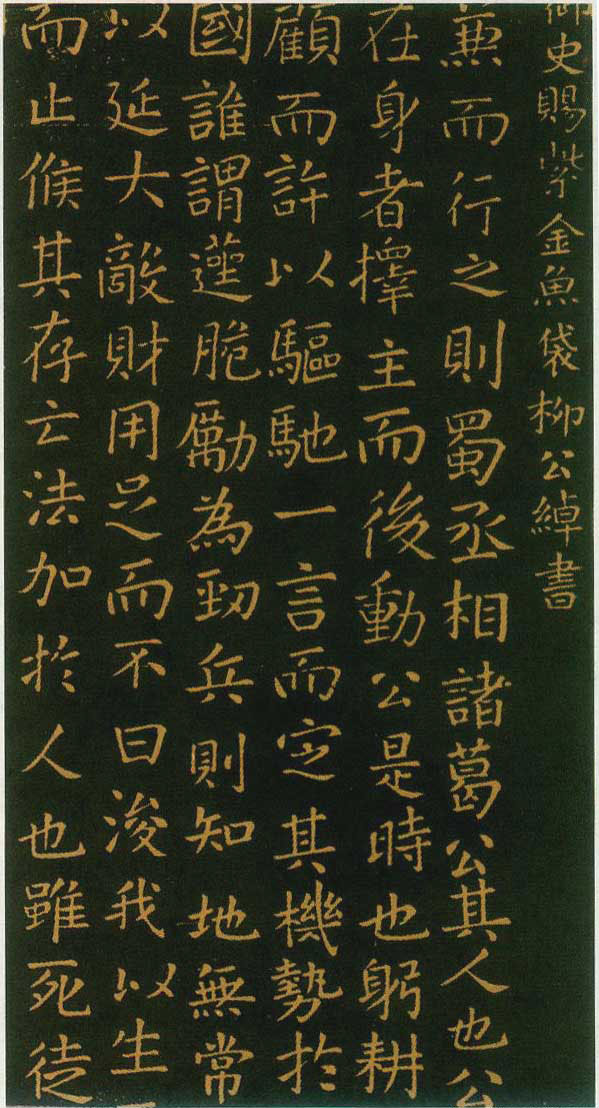 御史賜紫金魚袋柳公綽書
兼而行之則蜀丞相諸葛公其人也公
在身者擇主而後動公是時也躬耕
顧而許以驅馳一言而定其機勢於
國誰謂遳脆勵為勁兵則知地無常
以延大敵財用足而不曰浚我以生
而止候其存亡法加於人也雖死徒